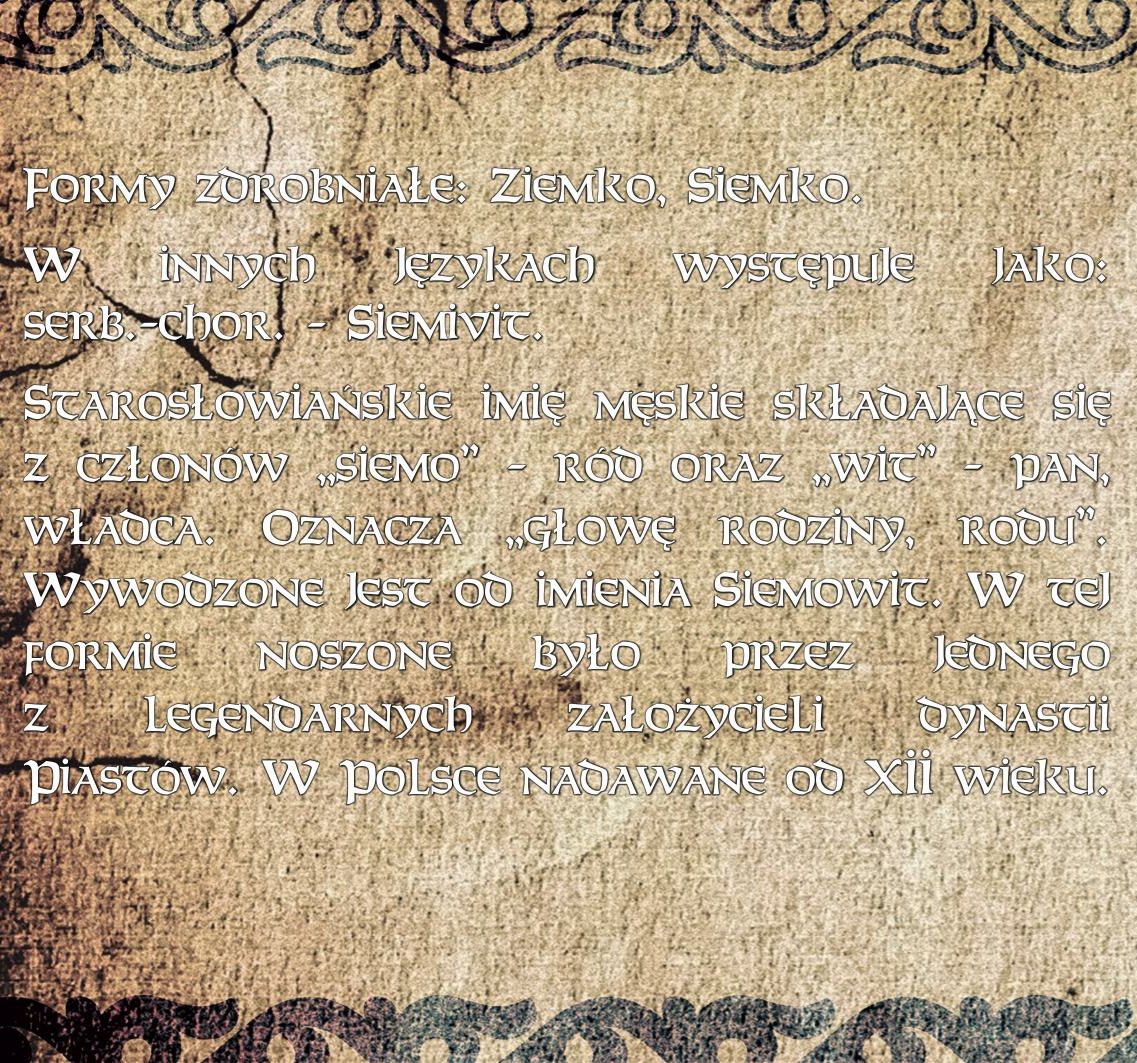 Formy zdrobniałe: Ziemko, Siemko.
W innych językach występuje jako:
serb.-chor. - Siemivit.
Starosłowiańskie imię męskie składające się
z członów „siemo” - ród oraz „wit” - pan,
władca. Oznacza „głowę rodziny, rodu”.
Wywodzone jest od imienia Siemowit. W tej
formie noszone było przez jednego
z legendarnych założycieli dynastii
Piastów. W Polsce nadawane od XII wieku.